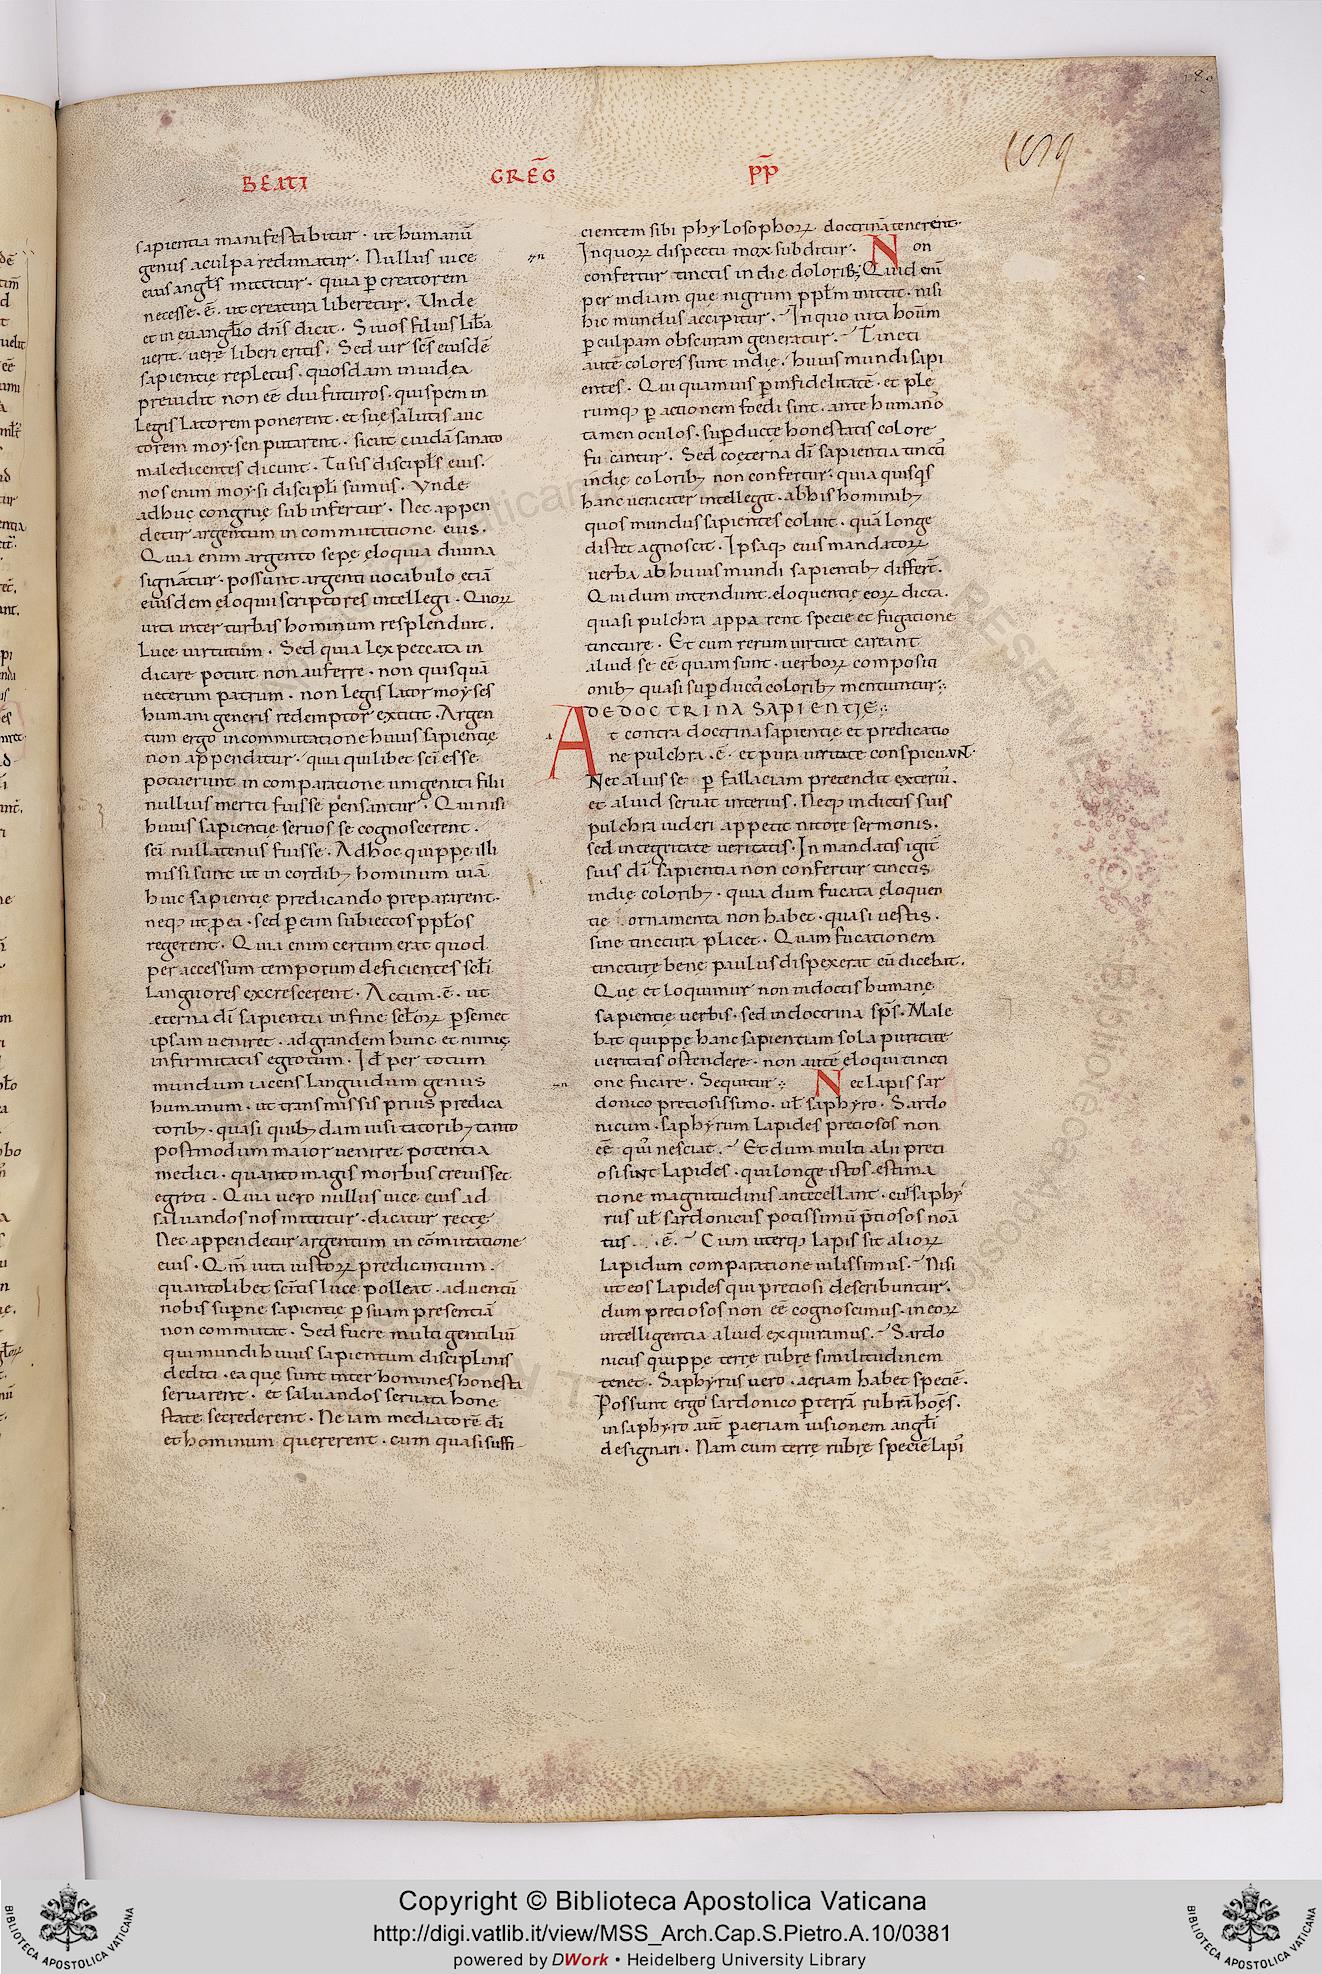 BEATI GREḠ P̄P̄
sapientia manifestabitur · ut humanū
genus a culpa redimatur · Nullus uice
eius angl̄s mittitur · quia ꝑ creatorem
necesse · ē · ut creatura liberetur · Unde
et in euangl̄io dn̄s dicit · Si uos filius lib̄a
uerit · uere liberi eritis · Sed uir sc̄s eiusdē
sapientię repletus · quosdam in iudea
preuidit non eē diu futuros · qui spem in
Legis Latorem ponerent · et suę salutis auc
torem moysen putarent · sicut cuidā sanato
maledicentes dicunt · Tu sis discipl̄s eius ·
nos enim moysi discipl̄i sumus · Unde
adhuc congruę subinfertur · Nec appen
detur argentum in commutatione eius ·
Quia enim argento sepe ęloquia diuina
signātur · possunt argenti uocabulo etiā
eiusdem ęloquii scriptores intellegi · Quoꝝ
uita inter turbas hominum resplenduit ·
Luce uirtutum · Sed quia Lex peccata in
dicare potuit non auferre · non quisquā
ueterum patrum · non legis lator moyses
humani generis redemptor extitit · Argen
tum ergo in commutatione huius sapientię
non appenditur · quia quilibet sc̄i esse
potuerunt in comparatione unigeniti filii
nullius meriti fuisse pensantur · Qui nisi
huius sapientię seruos se cognoscerent ·
sc̄i nullatenus fuisse · Ad hoc quippe illi
missi sunt ut in cordibꝫ hominum uiā
huic sapientię predicando prepararent ·
neqꝫ ut ꝑ ea · sed ꝑ eam subiectos ppl̄os
regerent · Quia enim certum erat quod
per accessum temporum deficientes scl̄i
languores excrescerent · Actum · ē · ut
ęterna dī sapientia in fine scl̄oꝝ ꝑ semet
ipsam ueniret · ad grandem hunc et nimię
infirmitatis egrotum · Id̄ per totum
mundum iacens languidum genus
humanum · ut transmissis prius predica
toribꝫ · quasi quibꝫdam uisitatoribꝫ tanto
postmodum maior ueniret potentia
medici · quanto magis morbus creuisset
egroti · Quia uero nullus uice eius ad
saluandos nos mittitur · dicatur rectę
Nec appendetur argentum in cōmutatione
eius · Qm̄ uita iustoꝝ predicantium ·
quantolibet sc̄itatis luce polleat · aduentū
nobis supernę sapientię ꝑ suam presentiā
non commutat · Sed fuere multi gentiliū
qui mundi huius sapientum disciplinis
dediti · ea que sunt inter homines honesta
seruarent · et saluandos seruata hone
state se crederent · Ne iam mediatorē dī
et hominum quererent · cum quasi suffi-
cientem sibi phylosophoꝝ doctrinā tenerent ·
In quoꝝ dispectu mox subditur · Non
confertur tinctis indie coloribꝫ Quid enī
per indiam que nigrum ppl̄m mittit · nisi
hic mundus accipitur · In quo uita hoūm
ꝑ culpam obscuram generatur · Tincti
autē colores sunt indię · huius mundi sapi
entes · Qui quamuis ꝑ infidelitatē · et ple
rumqꝫ ꝑ actionem foedi sint · ante humano
tamen oculos · suꝑductę honestatis colore
fucantur · Sed coęterna dī sapientia tincti
indię coloribꝫ non confertur · quia quisqs
hanc ueraciter intellegit · ab his hominibꝫ
quos mundus sapientes coluit · quā longe
distet agnoscit · Ipsaqꝫ eius mandatoꝝ
uerba ab huius mundi sapientibꝫ differt̄ ·
Qui dum intendunt eloquentię eoꝝ dicta ·
quasi pulchra apparent specie et fugatione
tincture · Et cum rerum uirtute careant
aliud se eē quam sunt · uerboꝝ compositi
onibꝫ quasi suꝑductī coloribꝫ mentiuntur ⁘
DE DOCTRINA SAPIENTIĘ ⁘
At contra doctrina sapientię et predicatio
ne pulchra · ē · et pura ueritate conspicua N̄ ·
Nec alius se ꝑ fallaciam pretendit exteriū ·
et aliud seruat interius · Neqꝫ in dictis suis
pulchra uideri appetit nitore sermonis ·
sed integritate ueritatis · In mandatis igit̄
suis dī sapientia non confertur tinctis
indię coloribꝫ · quia dum fucata ęloquen
tię ornamenta non habet · quasi uestis ·
sine tinctura placet · Quam fucationem
tincturę bene paulus dispexerat cū dicebat ·
Que et loquimur non in doctis humane
sapientię uerbis · sed in doctrina sp̄s · Male
bat quippe hanc sapientiam sola puritate
ueritatis ostendere · non autē eloquii tincti
one fucare · Sequitur ⁘ Nec lapis sar
donico preciosissimo · uł saphyro · Sardo
nicum · saphyrum lapides preciosos non
eē quī nesciat · Et dum multi alii preti
osi sint lapides · qui longe istos estima
tione magnitudinis antecellant · cur saphy
rus uł sardonicus potissimū p̄tiosos noīa
tus · ē · Cum uterqꝫ lapis sit alioꝝ
lapidum comparatione uilissimus · Nisi
ut eos lapides qui preciosi describuntur ·
dum preciosos non eē cognoscimus · in eoꝝ
intelligentia aliud exquiramus · Sardo
nicus quippe terrę rubrę similitudinem
tenet · Saphyrus uero · aeriam habet speciē ·
Possunt ergo sardonico ꝑ terrā rubrā hōes ·
in saphyro aut̄ ꝑ aeriam uisionem angl̄i
designari · Nam cum terrę rubrę speciē lapī
Copyright © Biblioteca Apostolica Vaticana
http://digi.vatlib.it/view/MSS_Arch.Cap.S.Pietro.A.10/0381
powered by DWork • Heidelberg University Library
BIBLIOTECA APOSTOLICA VATICANA
BIBLIOTECA APOSTOLICA VATICANA